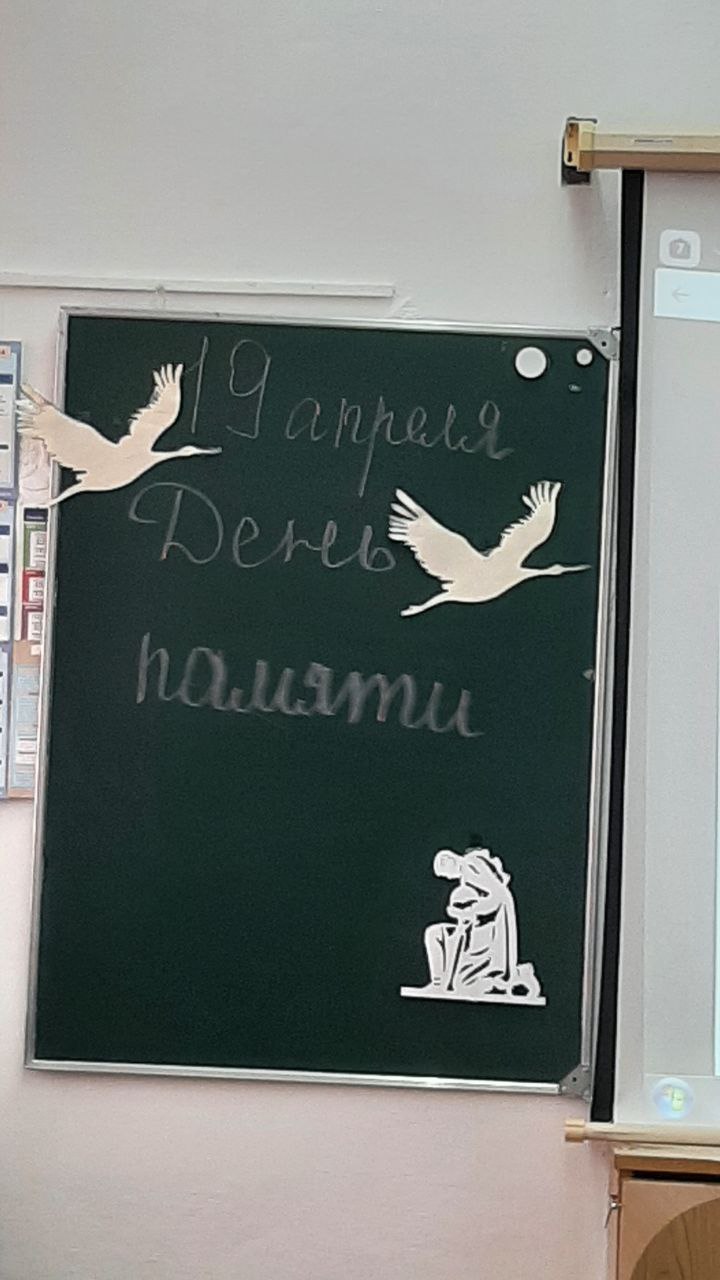 19 апреля
День
памяти
7